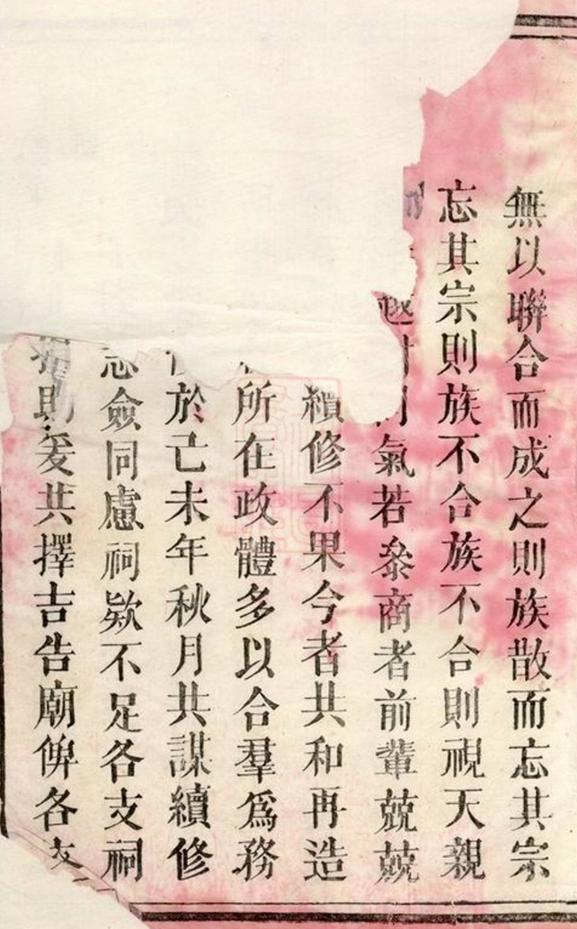 無以聯合而成之則族散而忘其宗
忘其宗則族不合族不合則視天親
越氣若叅商者前輩兢兢
續修不果今者共和再造
所在政體多以合羣爲務
於己未年秋月共謀續修
僉同慮祠欵不足各支祠
助爰共擇吉告廟俾各支